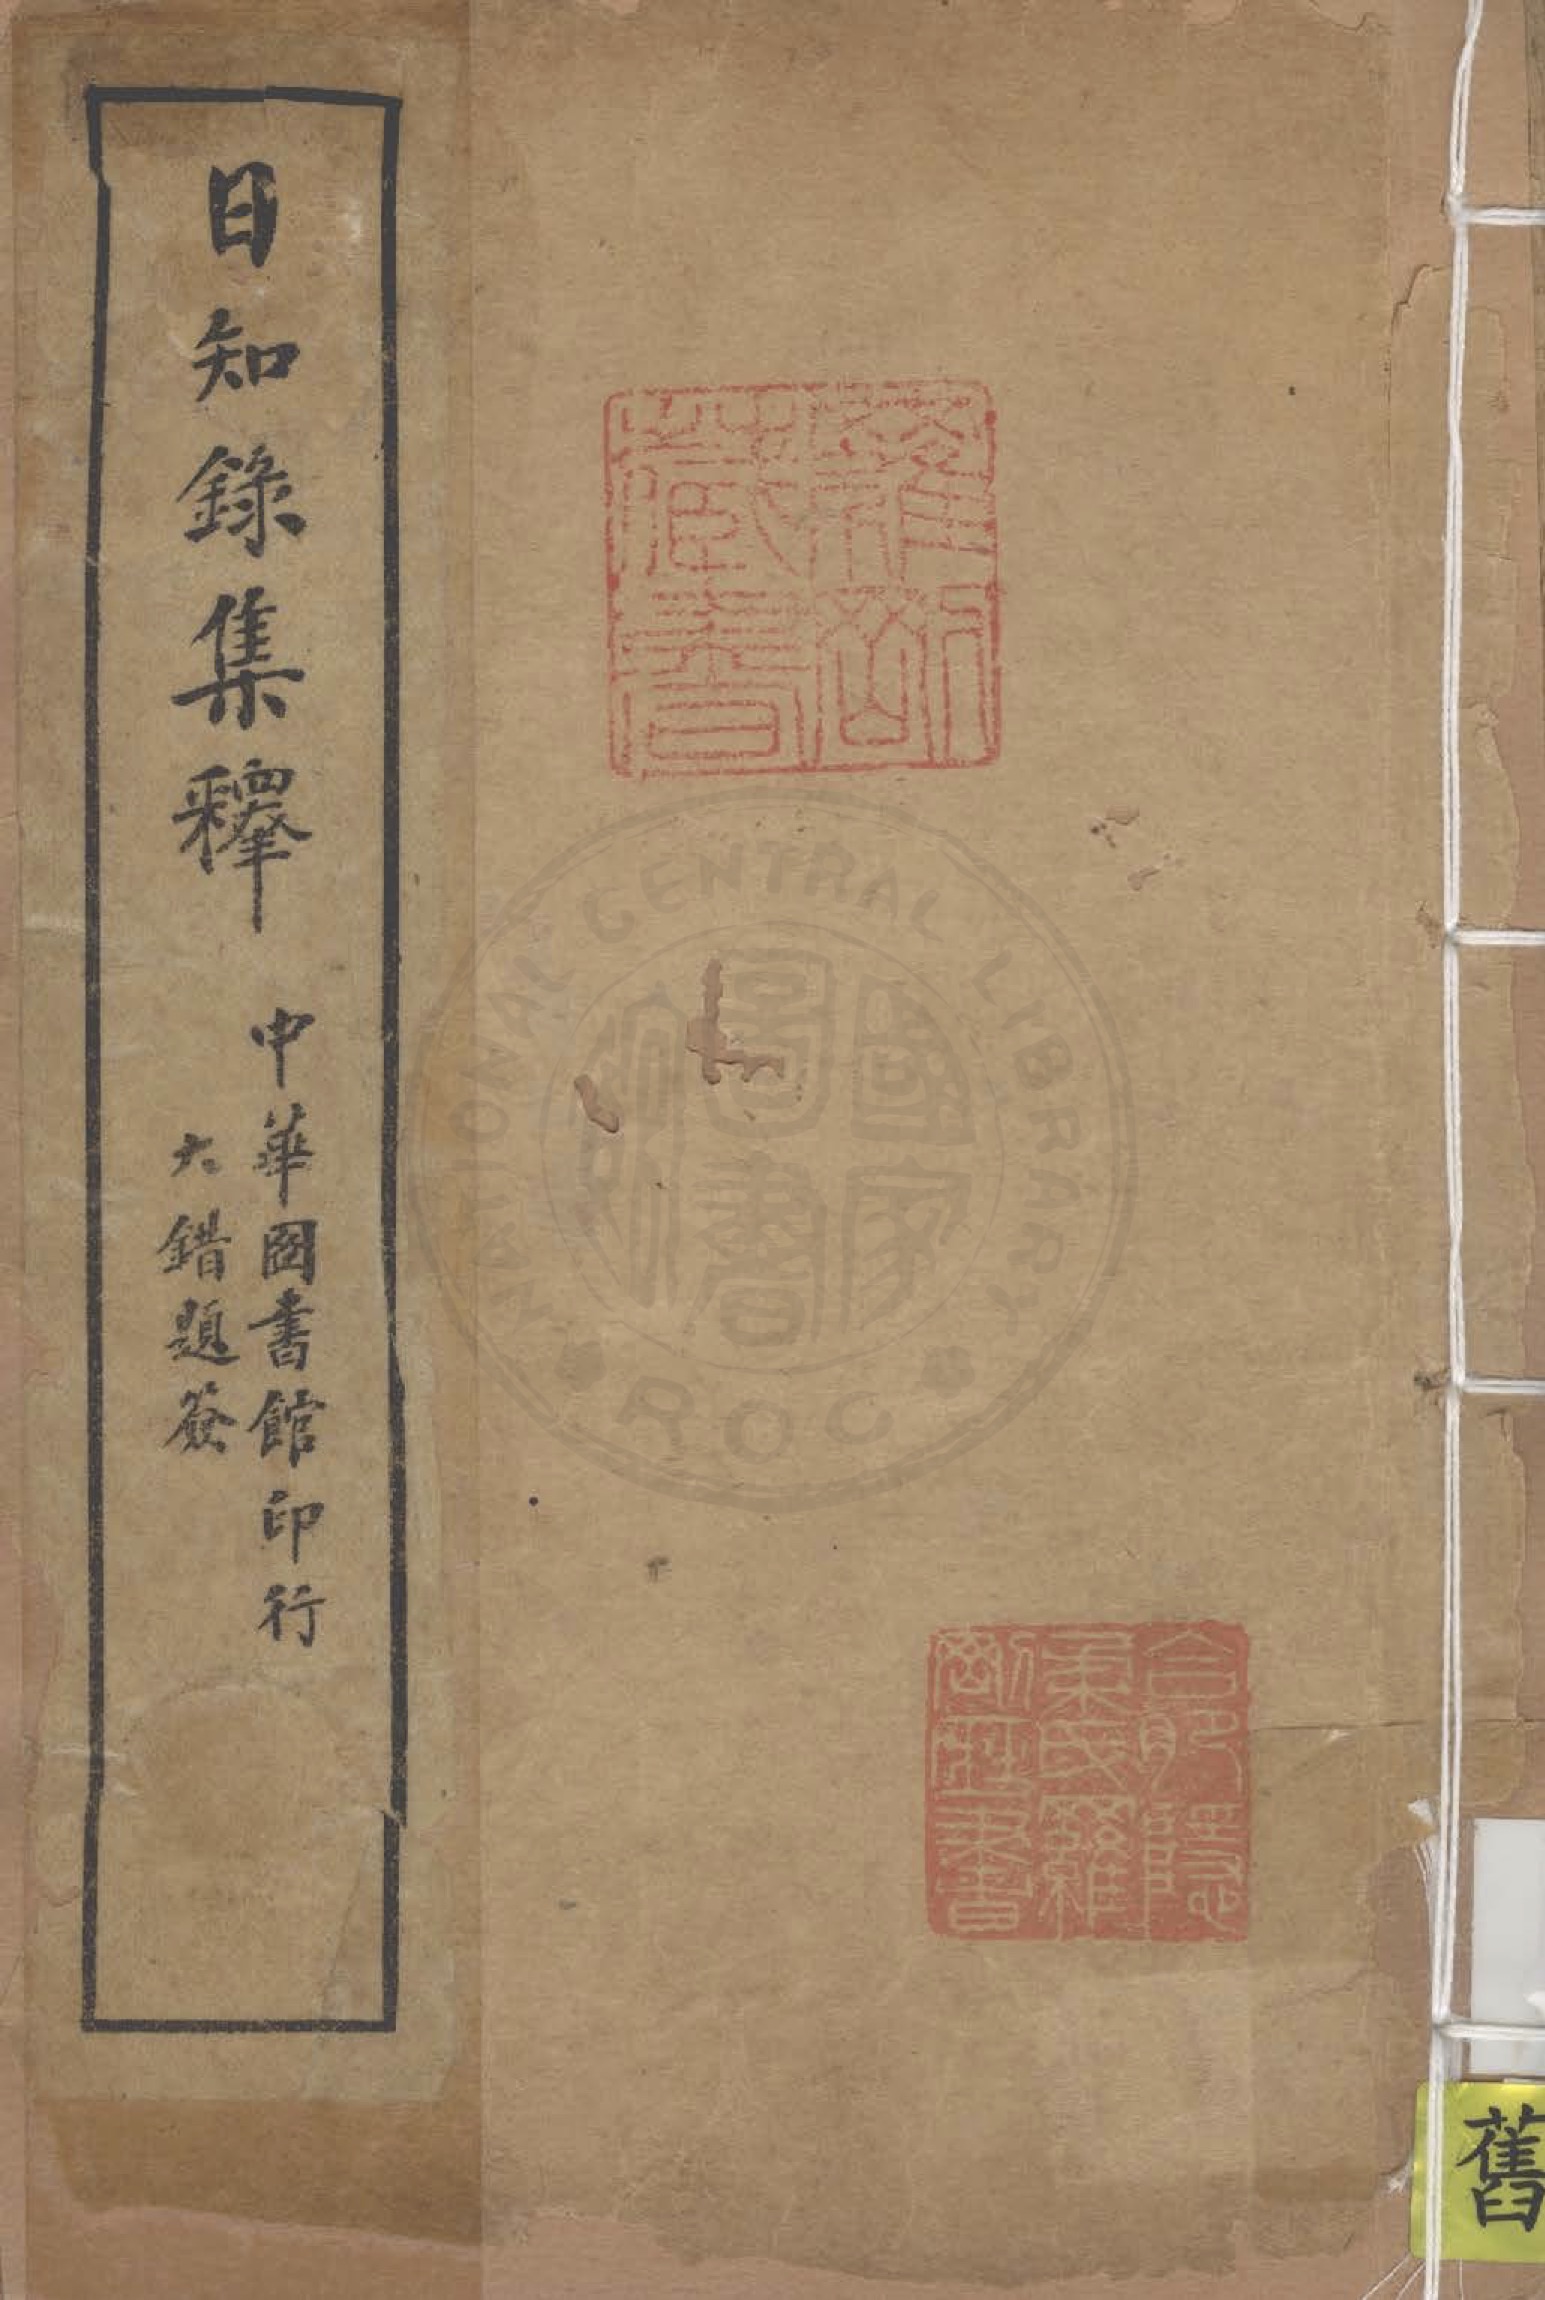 日知錄集釋
中華圖書館印行
大錯題簽
羅𡶶
藏書
國家
圖書
NATIONAL CENTRAL LIBRARY
ROC
舊